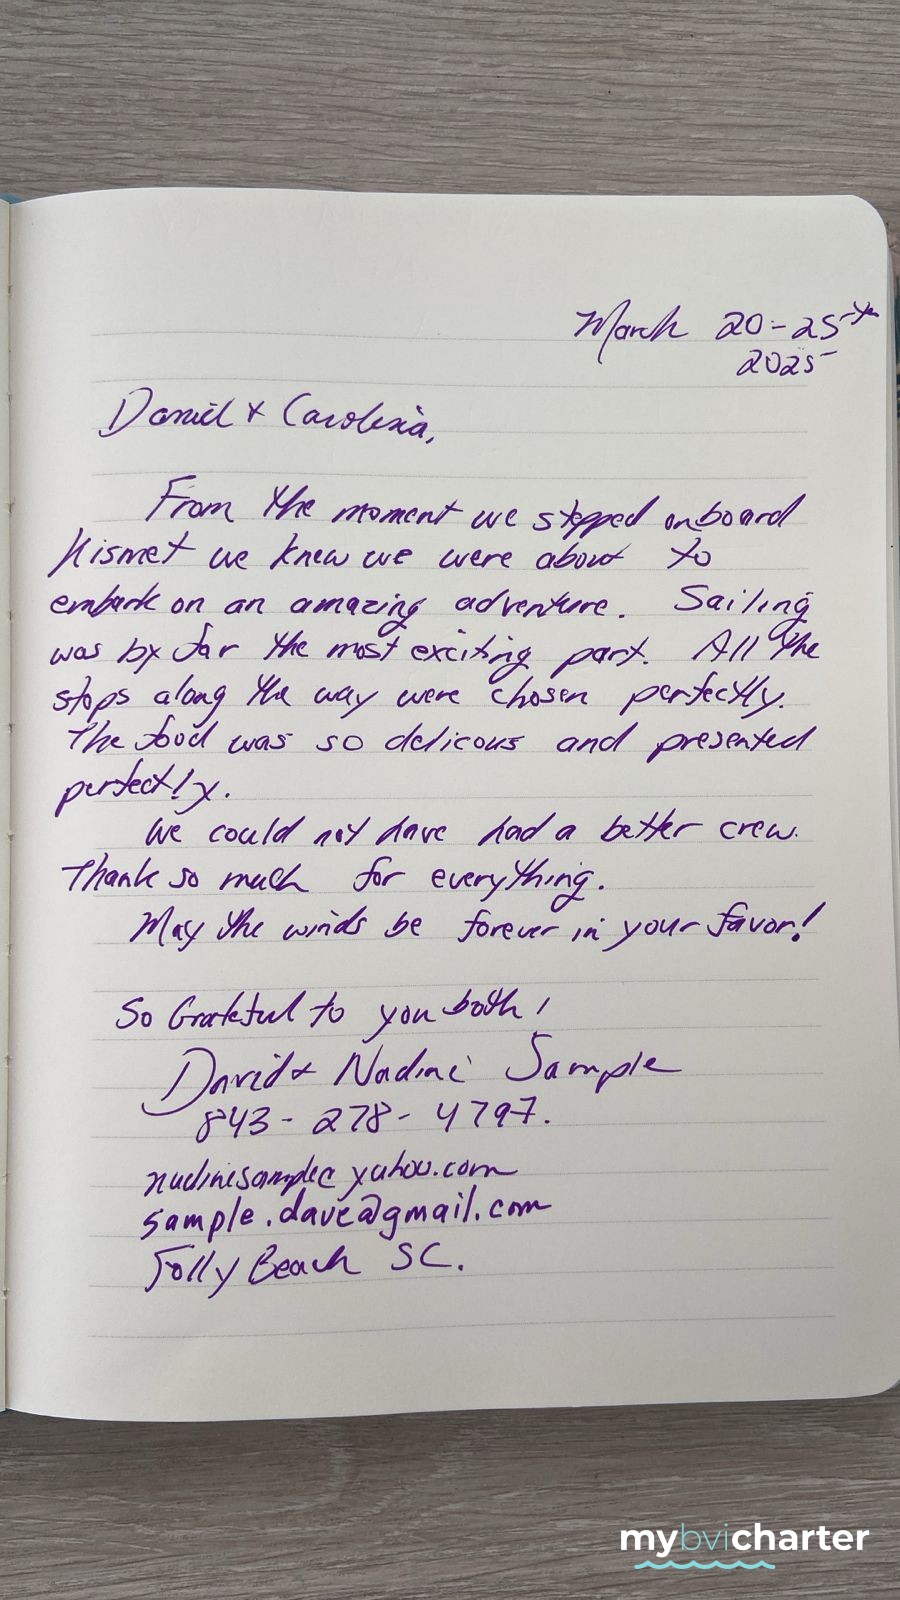 March 20-25th
2025
Daniel + Carolina,
From the moment we stepped onboard
Kismet we knew we were about to
embark on an amazing adventure. Sailing
was by far the most exciting part. All the
stops along the way were chosen perfectly.
The food was so delicous and presented
perfectly.
We could not have had a better crew.
Thank so much for everything.
May the winds be forever in your favor!
So Grateful to you both!
David + Nadine Sample
843-278-4797.
nadinesample@yahoo.com
sample.dave@gmail.com
Folly Beach SC.
mybvicharter